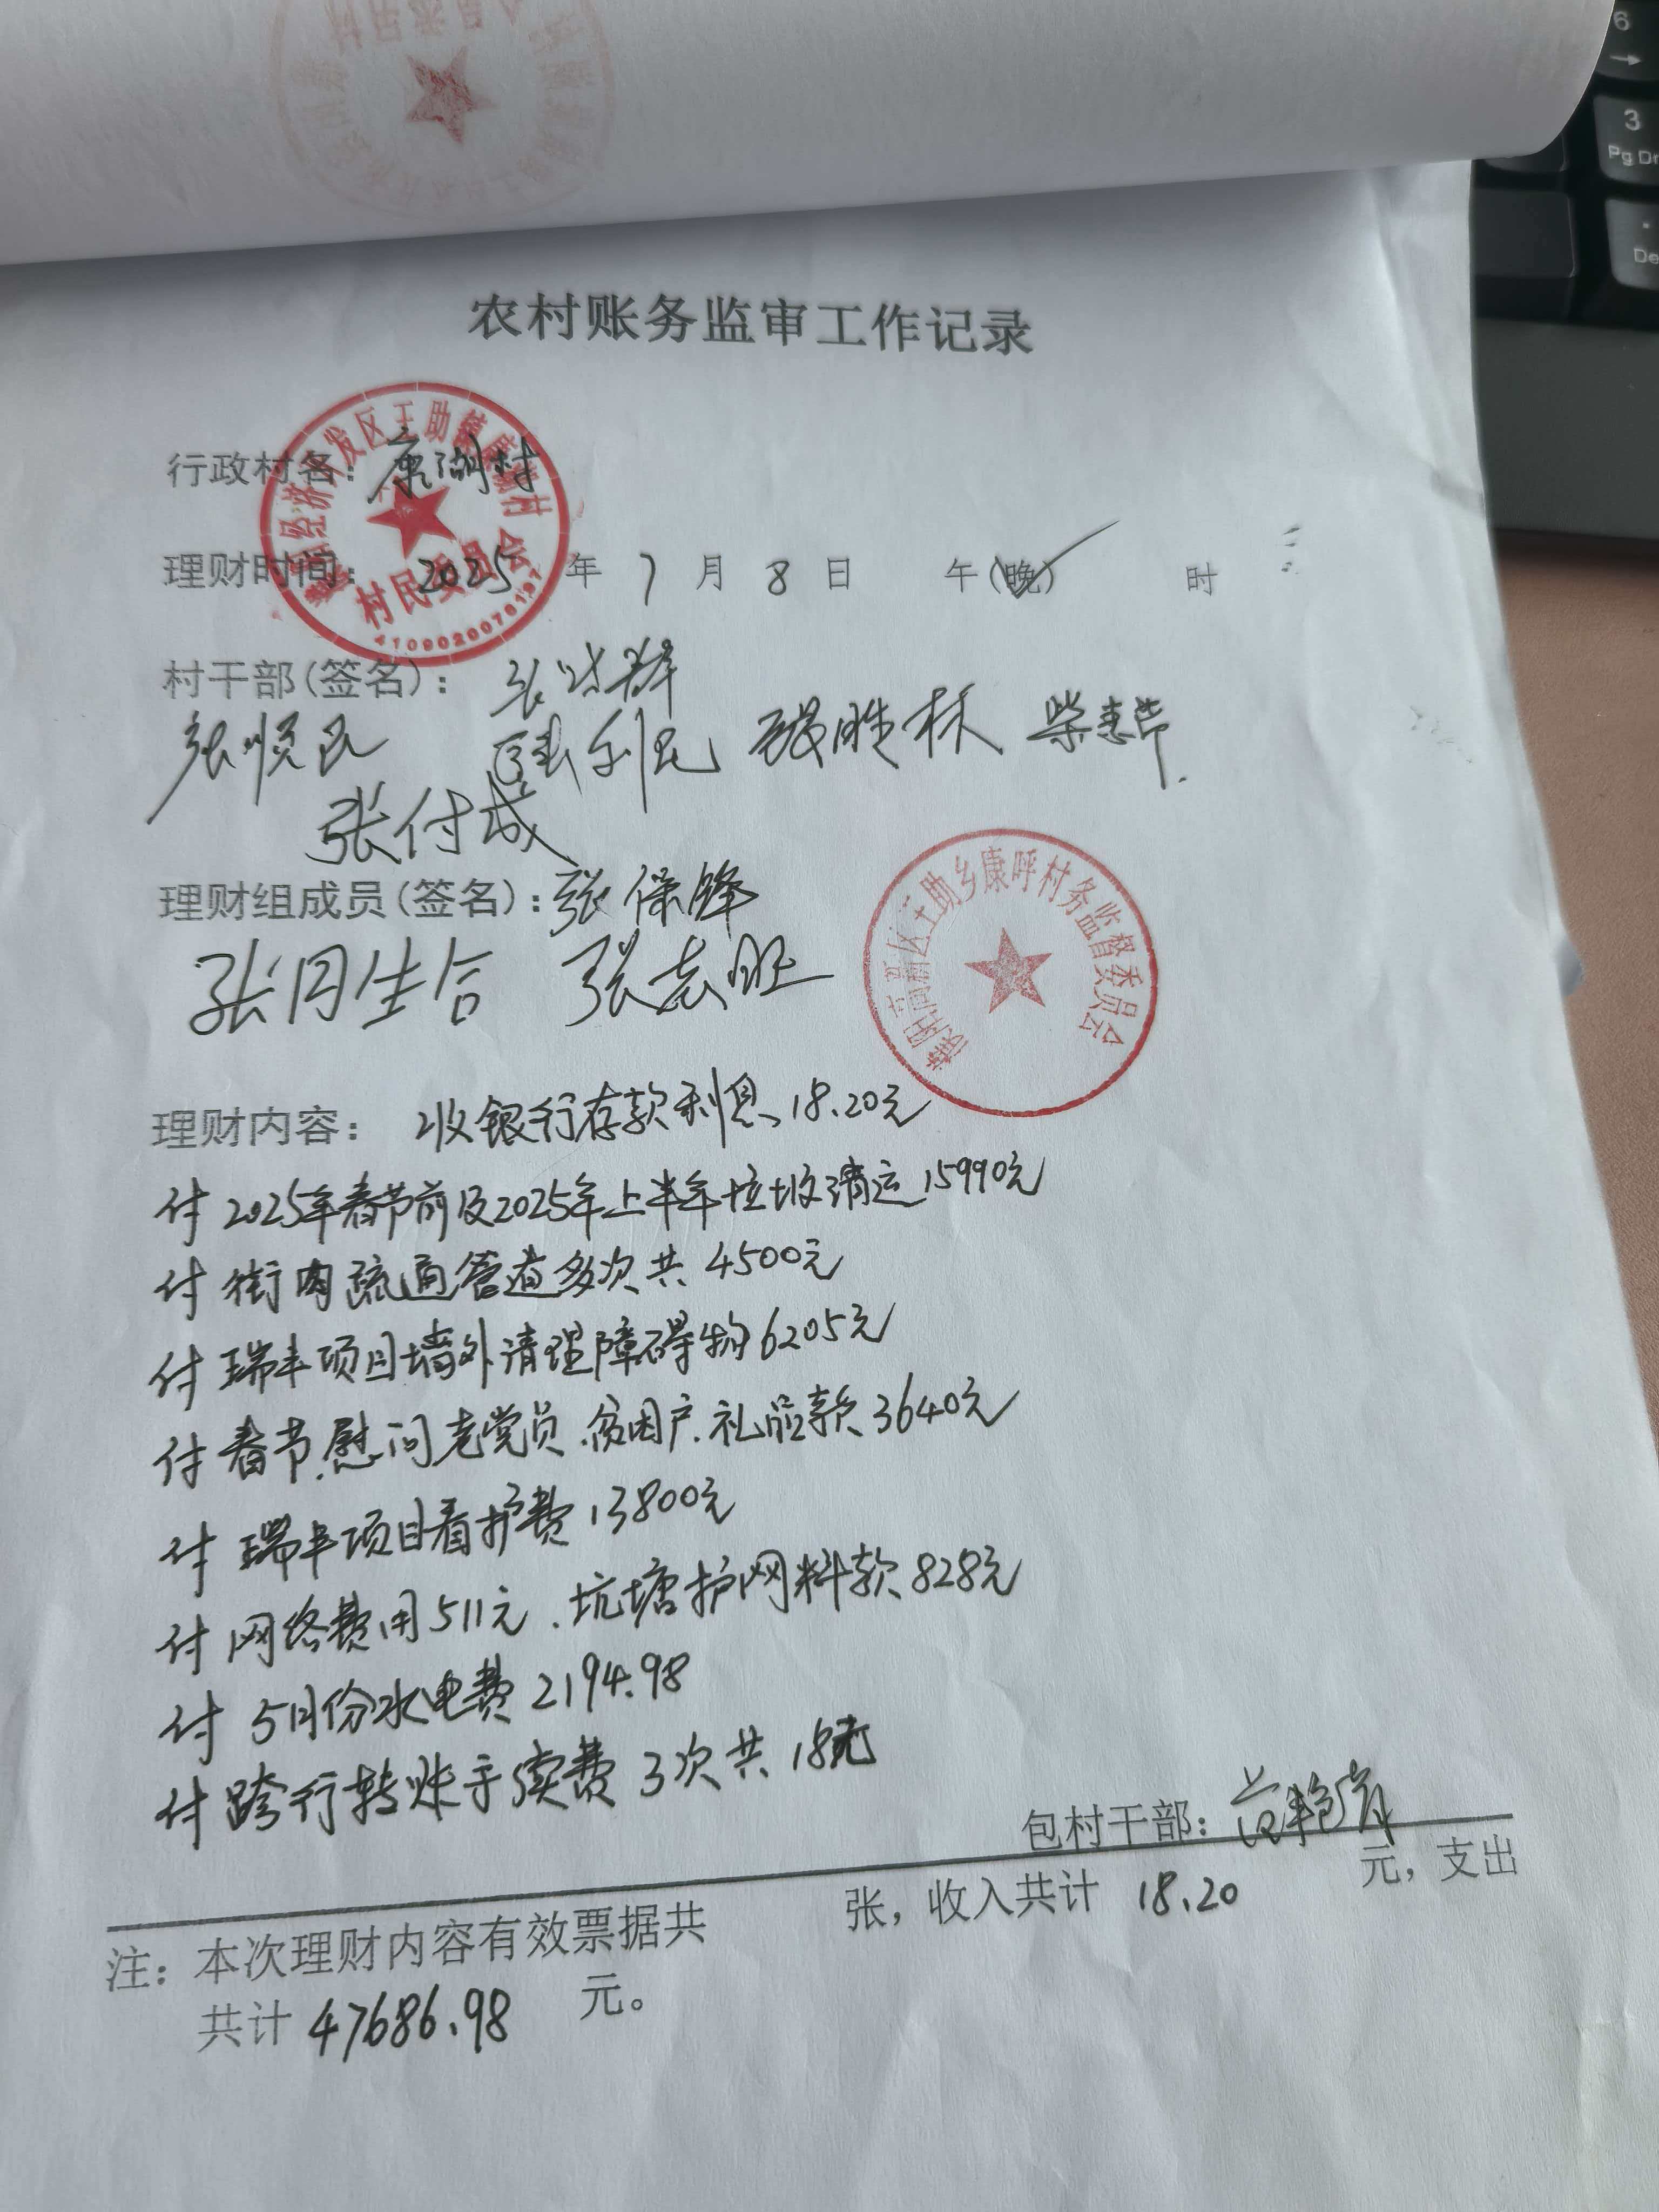 农村账务监审工作记录
行政村名：康湖村
理财时间：2025年7月8日 午(晚) 时
村民委员会
4109020070197
村干部(签名)：
张顺民 张利民 张胜林 柴惠芹
张付成
理财组成员(签名)：张保峰
张同生合 张志旺
区王助乡康呼村务监督委员会
理财内容： 收银行存款利息18.20元
付2025年春节前及2025年上半年垃圾清运15990元
付街内疏通管道多次共4500元
付瑞丰项目墙外清理障碍物6205元
付春节慰问老党员.贫困户.礼品款3640元
付瑞丰项目看护费13800元
付网络费用511元.坑塘护网料款828元
付5月份水电费2194.98
付跨行转账手续费3次共18元
包村干部：
注：本次理财内容有效票据共 张，收入共计 18.20 元，支出
共计 47686.98 元。
6
3
Pg Dn